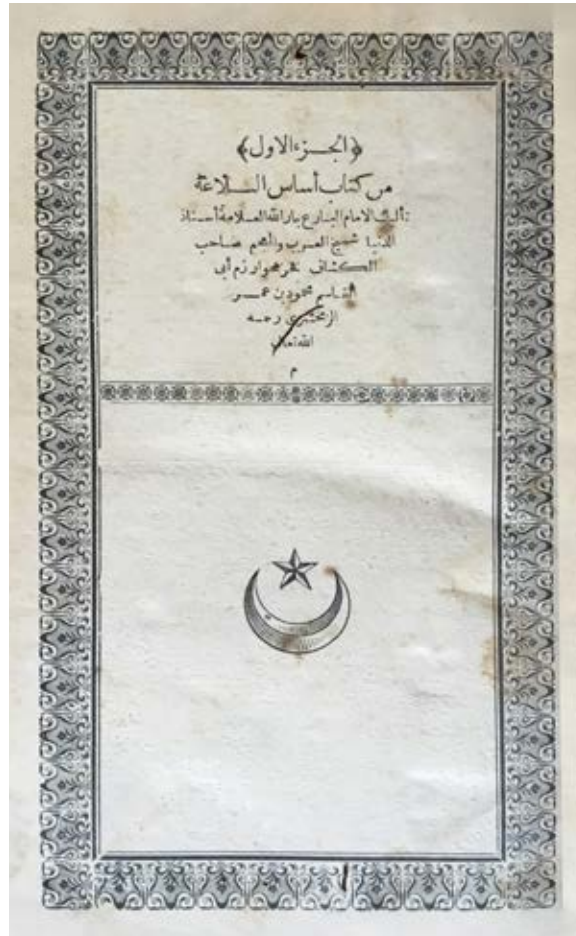 ﴿الجزء الاول﴾
من كتاب أساس البلاغة
تأليف الامام البارع جار الله العلامة أستاذ
الدنيا شيخ العرب والعجم صاحب
الكشاف فخر خوارزم أبى
القاسم محمود بن عمر
الزمخشرى رحمه
الله تعالى
م
١